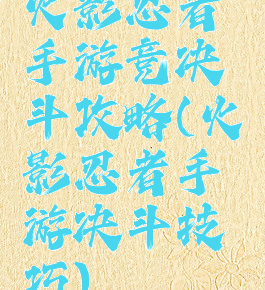 火影忍者
手游竞决
斗攻略(火
影忍者手
游决斗技
巧)